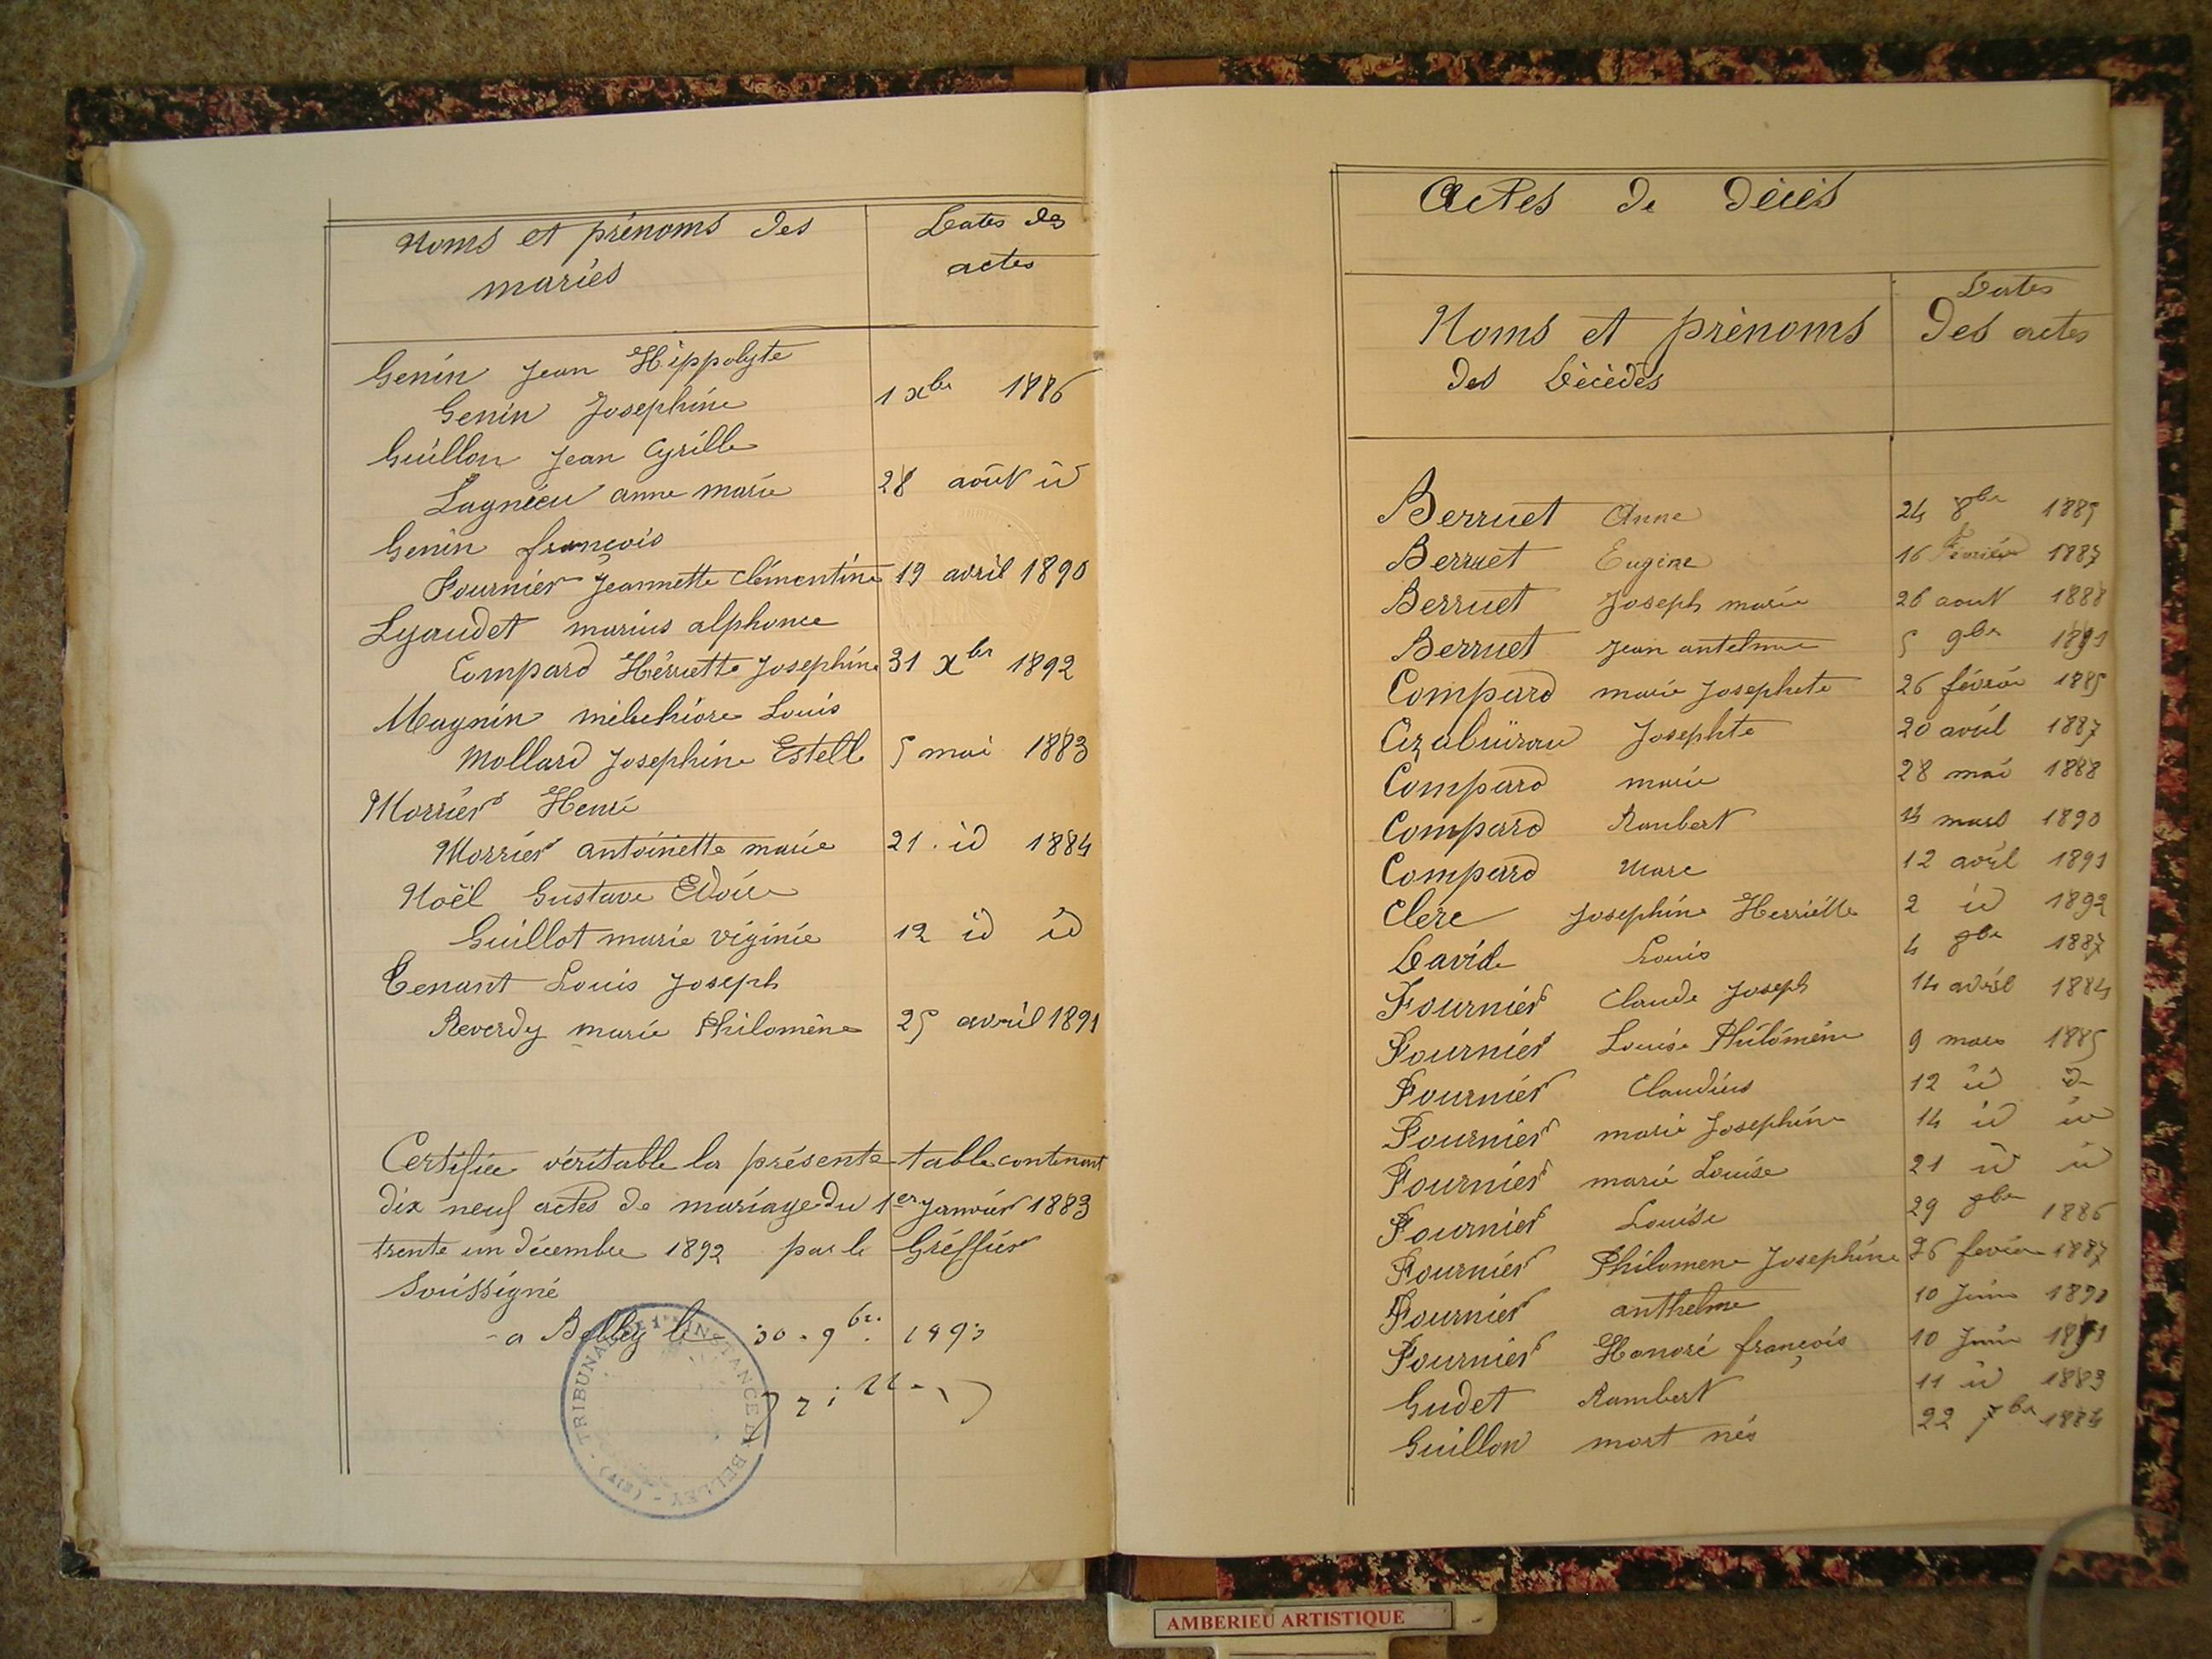 Noms et prénoms des
mariés
Dates des
actes
Genin Jean Hippolyte
Genin Josephine 1 xbre 1886
Guillon Jean Cyrille
Lagnieu anne marie 28 août id
Genin françois
Fournier Jeannette clémentine 19 avril 1890
Lyaudet marius alphonce
Compard Hériette Josephine 31 xbre 1892
Magnin melchiore Louis
Mollard Josephine Estelle 5 mai 1883
Morrier Henri
Morrier antoinette marie 21 id 1884
Noël Gustave
Guillot marie viginie 12 id id
Tenant Louis Joseph
Reverdy marie Philomène 25 avril 1891
Certifiée véritable la présente table contenant
dix neuf actes de mariage du 1er Janvier 1883
trente un décembre 1892 par le Gréffier
Soussigné
a Belley le 30 9bre 1893
TRIBUNAL DE 1ère INSTANCE DE BELLEY - (AIN) -
Actes de décès
Noms et prénoms
des Décédés
Dates
des actes
Berruet Anne 24 8bre 1885
Berruet Eugène 16 Février 1887
Berruet Joseph marie 26 aout 1888
Berruet Jean antelme 5 9bre 1891
Compard marie Josephete 26 février 1885
Josephte 20 avril 1887
Compard marie 28 mai 1888
Compard Rambert 14 mars 1890
Compard Marc 12 avril 1891
Clerc Josephine Herriette 2 id 1892
David Louis 4 8bre 1887
Fournier Claude Joseph 14 avril 1884
Fournier Louise Philomène 9 mars 1885
Fournier Claudius 12 id id
Fournier marie Josephine 14 id id
Fournier marie Louise 21 id id
Fournier Louise 29 8bre 1886
Fournier Philomene Josephine 26 fevier 1887
Fournier anthelme 10 Juin 1890
Fournier Honoré françois 10 Juin 1891
Gudet Rambert 11 id 1883
Guillon mort nés 22 7bre 1884
AMBERIEU ARTISTIQUE